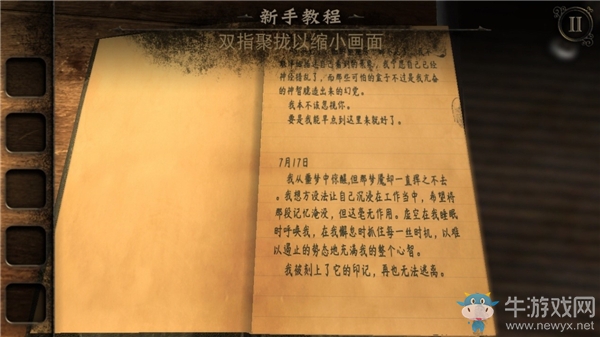 新手教程
双指聚拢以缩小画面
神经错乱了，而那些可怕的盒子不过是我亢奋
的神智臆造出来的幻觉。
我本不该忽视你。
要是我能早点到这里来就好了。
7月17日
我从噩梦中惊醒,但那梦魇却一直挥之不去
。我想方设法让自己沉浸在工作当中，希望将
那段记忆淹没，但这毫无作用。虚空在我睡眠
时呼唤我，在我懈怠时抓住每一丝时机，以难
以遏止的势态地充满我的整个心智。
我被刻上了它的印记，再也无法逃离。
牛游戏网
www.newyx.net